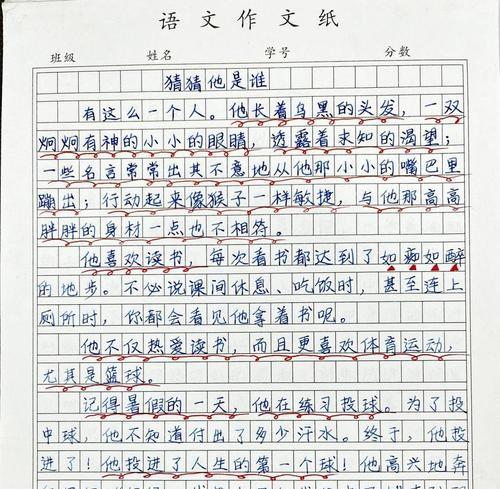 语文作文纸
班级 姓名 学号 分数
猜猜他是谁
有这么一个人。他长着乌黑的头发，一双
炯炯有神的小小的眼睛，透露着求知的渴望；
一些名言常常出其不意地从他那小小的嘴巴里
蹦出；行动起来像猴子一样敏捷，与他那高高
胖胖的身材一点也不相符。
他喜欢读书，每次看书都达到了如痴如醉
的地步。不必说课间休息、吃饭时，甚至连上
厕所时，你都会看见他拿着书呢。
他不仅热爱读书，而且更喜欢体育运动，
尤其是篮球。
记得暑假的一天，他在练习投球。为了投
中球，他不知道付出了多少汗水。终于，他投
进了！他投进了人生的第一个球！他高兴地奔